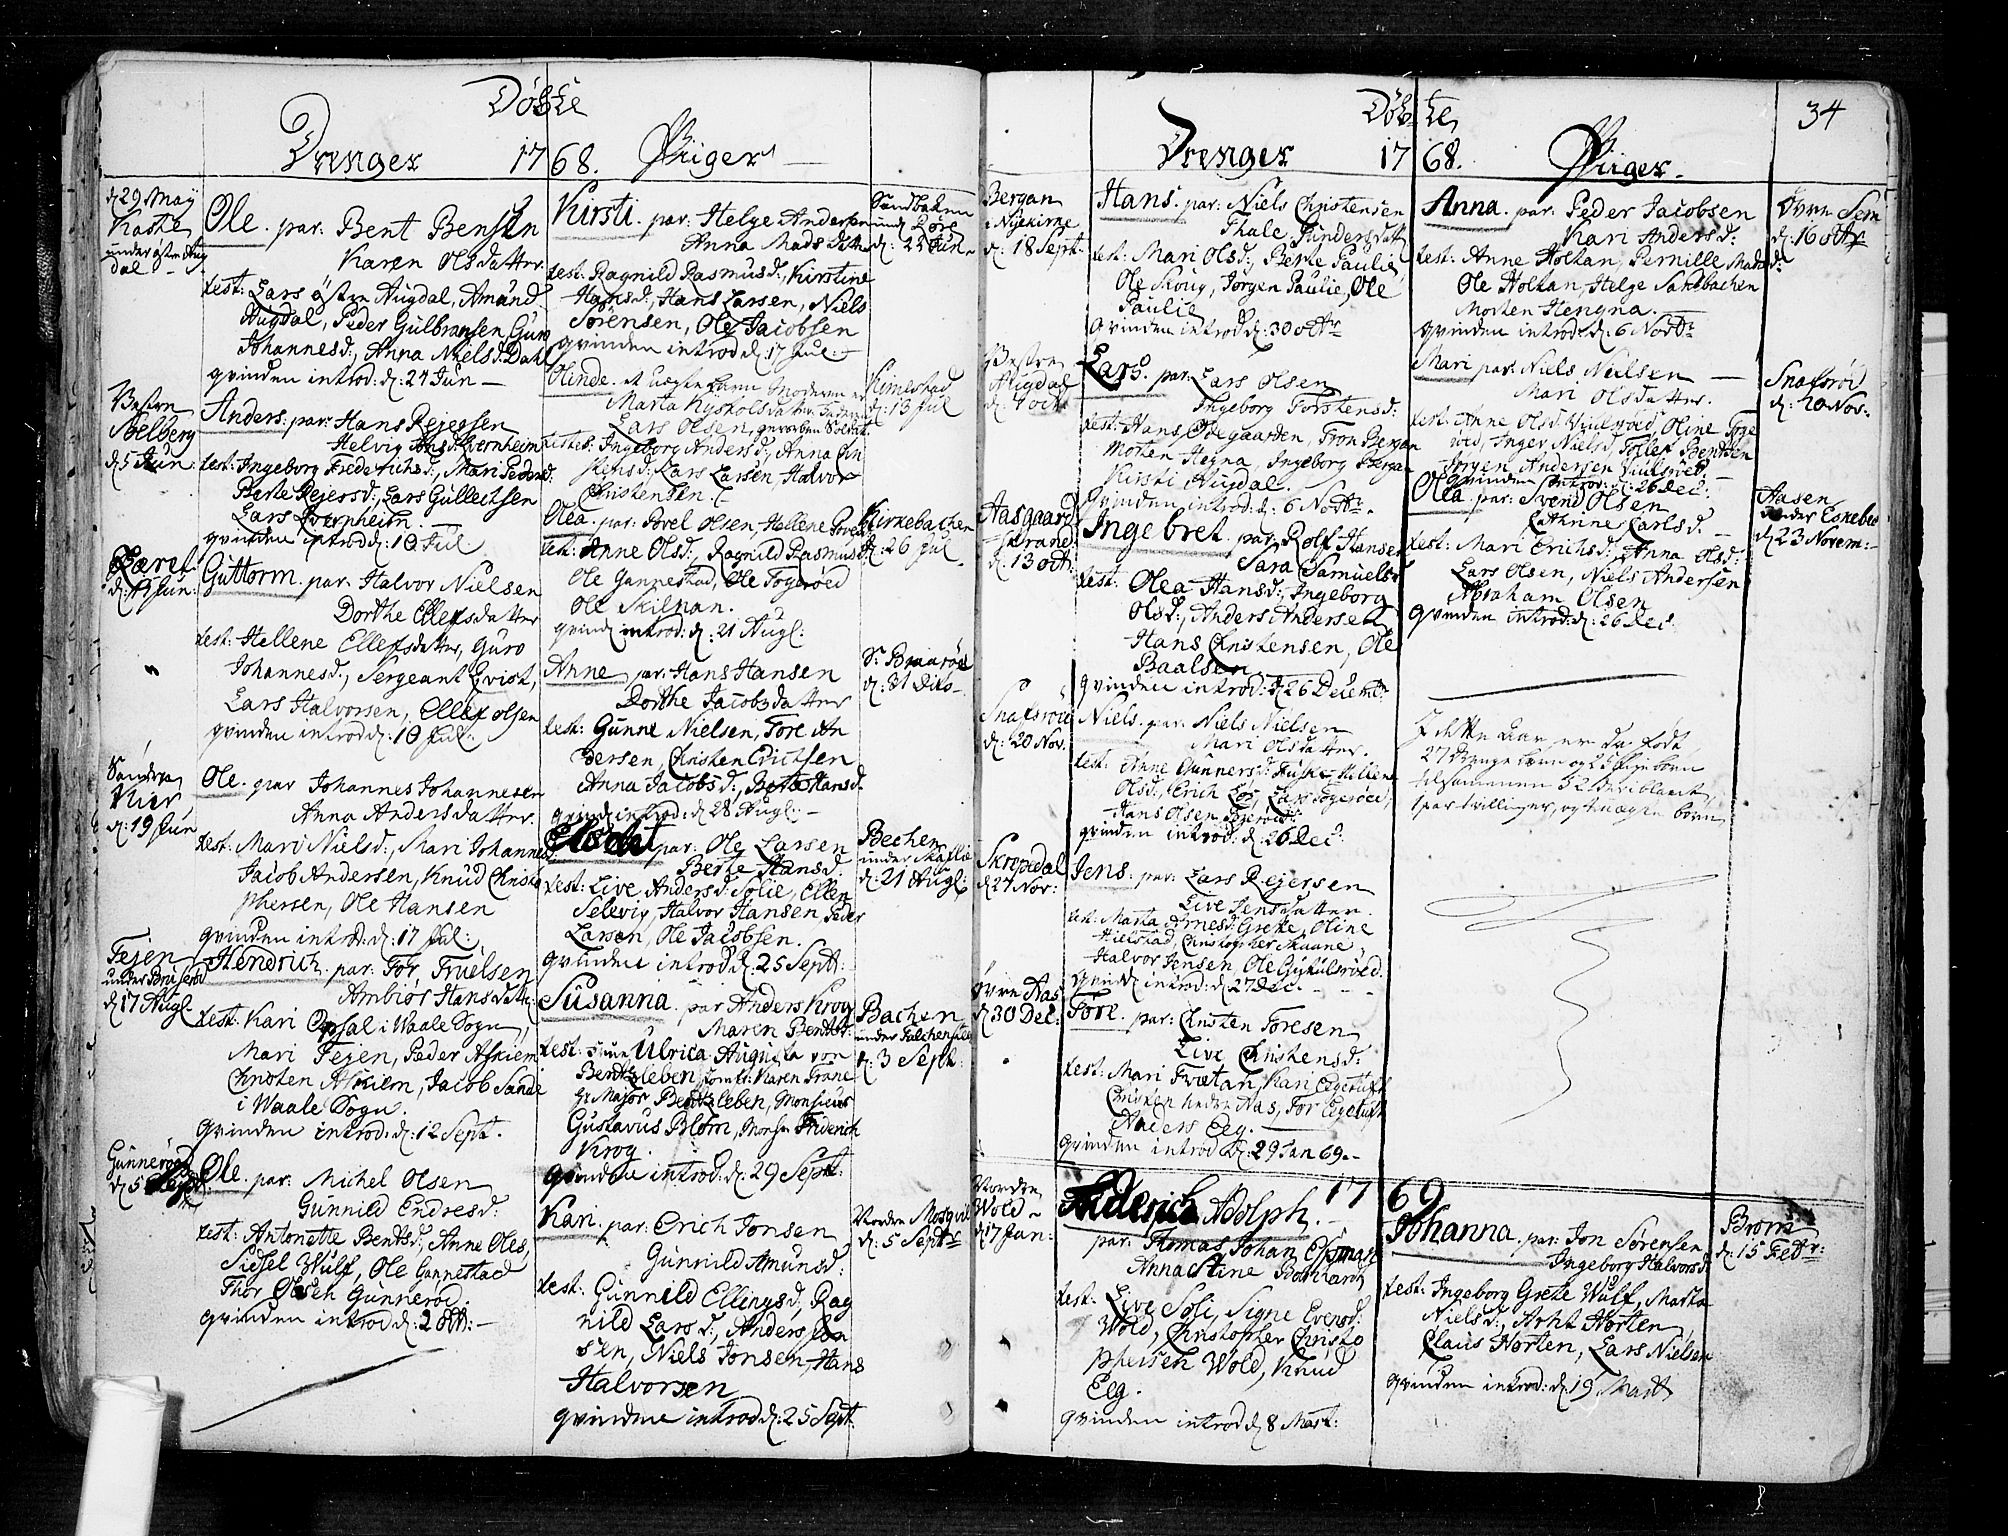 Døbte
Drenger 17
d: 29 May
Ole. par: Bent Bensen
Karen Olsdatter
test: Lars Østre Augdal, Amund
Augdal, Peder Gulbransen, Guro
Johannesd:, Anna Nielsd: Dahl
qvinden introd: d: 24 Jun
Vestre
Solberg
d: 5 Jun:
Anders: par: Hans Rejersen
Helvig
test: Ingeborg Frederichsd:, Mari Pedersd:
Berte Rejersd:, Lars Gullichsen
Lars
qvinden introd: d: 10 Jul:
d: 19 Jun:
Guttorm. par: Halvor Nielsen
Dorthe Ellefsdatter
test: Hellene Ellefsdatter, Guro
Johannesd:, Sergeant Qvist,
Lars Halvorsen, Ellef Olsen
qvinden introd: d: 10 Jul:
Søndre
d: 19 Jun
Ole. par Johannes Johannesen
Anna Andersdatter.
test: Mari Nielsd:, Mari Johannesd:
Jacob Andersen, Knud Christo
phersen, Ole Hansen
qvinden introd: d: 17 Jul:
Tejen
under
d: 17 Augl
Hendrich. par: Tor Truelsen
Ambiør Hansdatter
test: Kari Opsal i Waale Sogn,
Mari Tejen, Peder Askiem
Christen Askiem, Jacob Sande
i Waale Sogn.
qvinden introd: d: 12 Sept.
Gunnerød
d: 5 Sept:
Ole. par: Michel Olsen
Gunnild Endresd:
test: Antonette Bentsd:, Anne Oles,
Sidsel Wulf, Ole Gannestad
Thor Olsen Gunnerød.
qvinden introd: d: 2 Oct:
68. Piiger
Kirsti. par: Helge Andersen
Anna Madsdatter
test: Ragnild Rasmusd:, Kirstine
Hansd:, Hans Larsen, Niels
Sørensen, Ole Jacobsen
qvinden introd: d: 17 Jul:
Sandbachen
d: 24 Jun
Olinde. et uægte barn Moderen er
Marta
Lars Olsen, Soldat
testes: Ingeborg Andersd:, Anna
Lars Larsen, Halvor
Christensen.
Kimestad
d: 13 Jul
Olea. par: Povel Olsen, Hellene
test: Anne Olsd:, Ragnild Rasmusd:
Ole Gannestad, Ole Togerøed
Ole Skilpan.
qvind: introd: d: 21 Augl:
Kirkebachen
d: 26 Jul
Anne par: Hans Hansen
Dorthe Jacobsdatter
test: Gunne Nielsen, Tore An
dersen, Christen Erichsen
Anna Jacobsd:, Berte Hansd
qvind: introd: d: 28 Augl:
d: 31 Dito
par: Ole Larsen
Berte Hansd:
test: Live Andersd: Solie, Ellen
Selevig, Halvor Hansen, Peder
Larsen, Ole Jacobsen.
qvinden introd: d: 25 Sept:
Bechen
under
d: 21 Augl:
Susanna. par Anders Krog
Maren Bentsd:
test: Ulrica Augusta von
Bentzleben, Karen Trane
Hr Major Bentzleben, Monsieur
Gustavus Blom, Friderich
Krog.
qvinden introd: d: 29 Sept:
Bachen
under Falchensteen
d: 3 Sept:
Kari. par: Erich Jonsen
Gunnild Amunsd:
test: Gunnild Ellingsd:, Rag
nild Larsd:, Anders Jon
sen, Niels Jonsen, Hans
Halvorsen
qvinden introd: d: 25 Sept:
Nordre
d: 5 Septr
34
Døbte
Drenger 17
Bergan
i Nykirke
d: 18 Sept:
Hans. par: Niels Christensen
Thale Gundersdatter
test: Mari Olsd:, Berte Paulie,
Ole Skoug, Jørgen Paulie, Ole
Paulie
qvinden introd: d: 30 Octr
Vestre
Augdal
d: 9 Oct:
Lars. par: Lars Olsen
Ingeborg Torstensd:
test: Hans Ødegaarden, Tron Bergan
Morten Hegna, Ingeborg Bergan
Kirsti Augdal.
qvinden introd: d: 6 Novbr.
Aasgaard
Strand
d: 13 Oct:
Ingebret. par: Rolf Hansen
Sara Samuelsd
test: Olea Hansd:, Ingeborg
Olsd:, Anders Andersen,
Hans Christensen, Ole
Baalsen
qvinden introd: d: 26 Decembr
Snafsrøe
d: 20 Nov.
Niels. par: Niels Nielsen
Mari Olsdatter.
test: Anne Gunnersd:
Olsd:, Erich Løs, Lars Togerøed,
Hans Olsen
qvinden introd: d: 26 Dec:
Skropedal
d: 27 Nov:
Jens. par: Lars Rejersen
Live Jensdatter.
test: Marta Arnesd: Greke, Oline
Hielstad, Christopher Skaane,
Halvor Jensen, Ole
qvind: introd: d: 27 Dec.
Øvre Aas
d: 30 Dec:
Tore. par: Christen Toresen
Live Christensd:
test: Mari Fretan, Kari
Christen Nedre Aas, Tor
Anders Eeg.
qvinden introd: d: 29 Jan 69.
68. Piiger.
Anna. par: Peder Jacobsen
Kari Andersd:
test: Anne Holtan, Pernille Madsd:
Ole Holtan, Helge Sandbachen
Morten Hengna.
qvinden introd: d: 6 Novbr
Øvre Sem
d: 16 Octr
Mari par: Niels Nielsen
Mari Olsdatter.
test: Anne Olsd: Oline Toge
røed, Inger Nielsd, Tollef Bentsen
Jørgen Andersen
qvinden introd: d: 26 Dec:
Snafsrøe
d: 20 Nov:
Olea. par: Svend Olsen
Cathrine Carlsd.
test: Mari Erichsd:, Anna Olsd:
Lars Olsen, Niels Andersen
Abraham Olsen
qvinden introd: d: 26 Dec:
Aasen
under
d: 23 Novem:
I dette Aar er da født
27 Drenge børn og 25 Pige børn
tilsammen 52 deriblant
1 par tvillinger, og uægte børn
1769
Nordre
Wold
d: 17 Jan:
Friderich Adolph.
par: Thomas Johan
Anna Stine
test: Live Soli, Signe Evensd:
Wold, Christopher Christo
phersen Wold, Knud
Eeg.
qvinden introd: d: 8 Mart:
Johanna. par: Jon Sørensen
Ingeborg Halvorsd
test: Ingeborg Grete Wulf, Marta
Nielsd:, Horten,
Claus Horten, Lars Nielsen
qvinden introd: d: 19 Mart
d: 15 Febr: